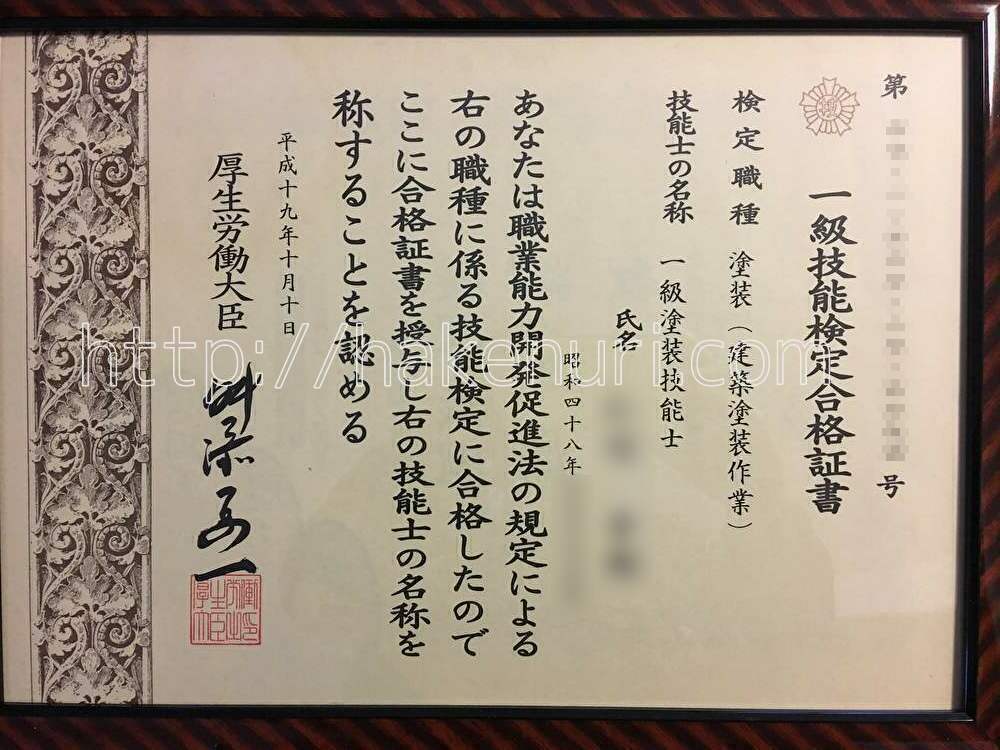 第 号
一級技能検定合格証書
検定職種 塗装（建築塗装作業）
技能士の名称 一級塗装技能士
氏名
昭和四十八年
あなたは職業能力開発促進法の規定による
右の職種に係る技能検定に合格したので
ここに合格証書を授与し右の技能士の名称を
称することを認める
平成十九年十月十日
厚生労働大臣 舛添要一
http://hakenuri.com